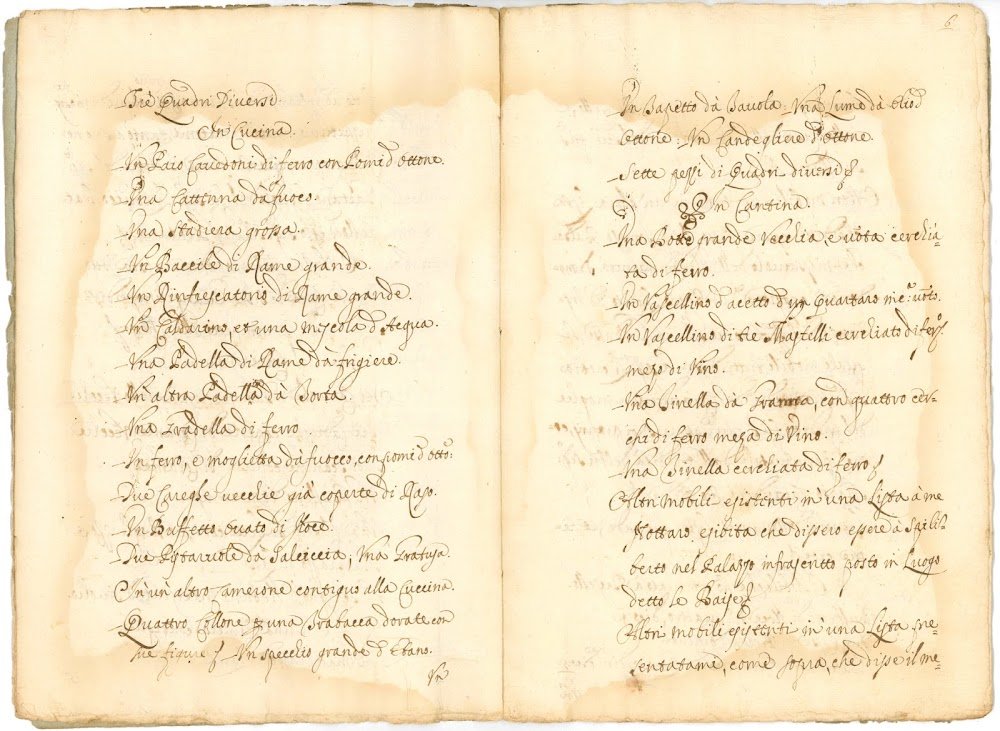 Trè Quadri Diversi
In Cucina.
Un Paio Cavedoni di ferro con Pomi d'ottone
Una Cattenna dà fuoco.
Una Stadiera grossa.
Un Baccile di Rame grande.
Un Rinfrescatorio di Rame grande.
Un Caldarino, et una mescola d'Acqua.
Una Padella di Rame dà frigiere.
Un' altra Padella dà Torta.
Una Gradella di ferro
Un ferro, e moglietta dà fuocco, con pomi d'otto:
Due Careghe vecchie già coperte di Raso.
Un Buffetto ovato di Noce
Due dà Salciccia, Una Gratusa.
In un' altro Camerone contiguo alla Cuccina.
Quattro Collone una Trabacca dorate con
due figure Un specchio grande d'Ebano.
Un
6
Un dà Tavola. Una Lume dà
ottone. Un Candegliere d'ottone
Sette pezzi di Quadri diversi
In Cantina.
Una Botte grande Vecchia, e vota cerchia-
ta di ferro.
Un Vascellino d'aceto d'un Quartaro me: voto.
Un Vascellino di tre Mastelli cerchiato di fer:
mezo di Vino.
Una Tinella dà, con quattro cer-
chi di ferro meza di Vino.
Una Tinella cerchiata di ferro
Altri Mobili esistenti in' una Lista à me
Nottaro, esibita che dissero essere à Spili-
berto nel Palazzo infrascritto posto in Luogo
detto le
Altri mobili esistenti in' una Lista pre-
sentatami, come sopra, che disse il me-